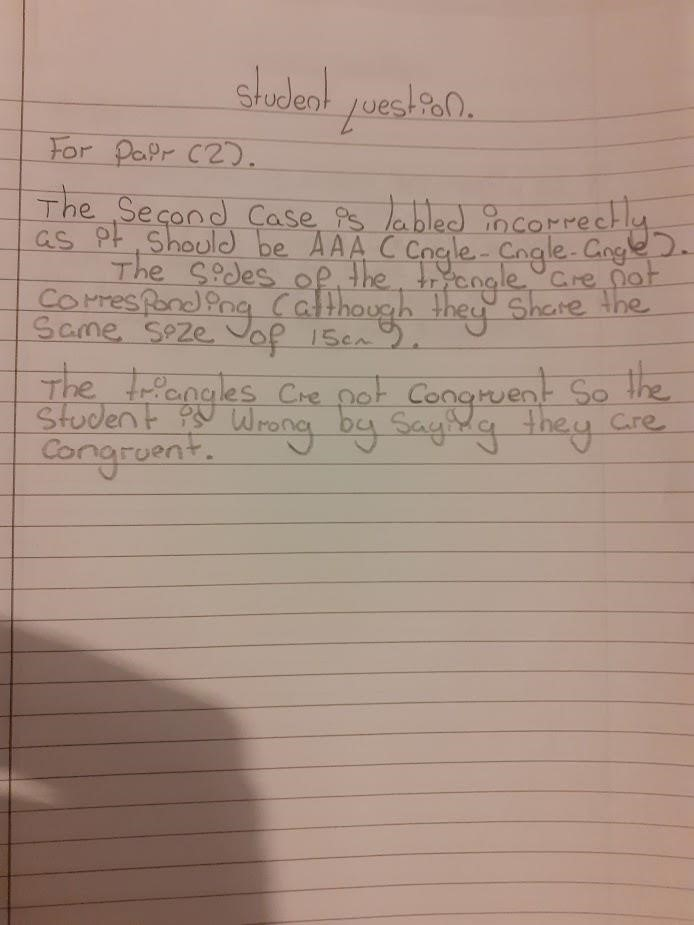 Student question.
For pair (2).
The second case is labled incorrectly
as it should be AAA (angle-angle-angle).
The sides of the triangle are not
corresponding (although they share the
same size of 15cm).
The triangles are not congruent so the
student is wrong by saying they are
congruent.